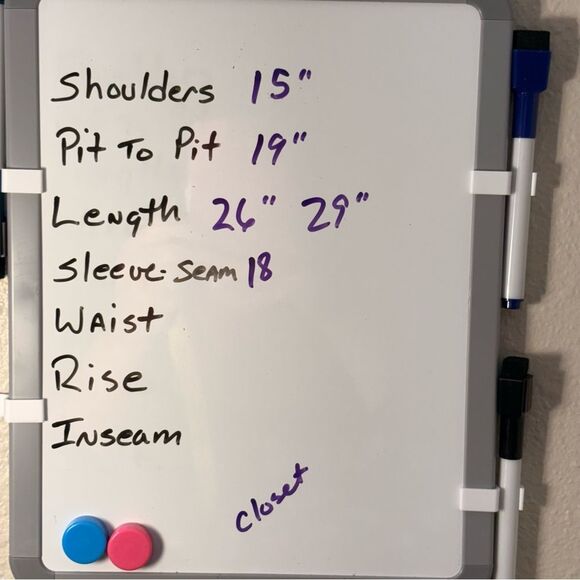 Shoulders 15"
Pit To Pit 19"
Length 26" 29"
Sleeve-Seam 18
Waist
Rise
Inseam
closet